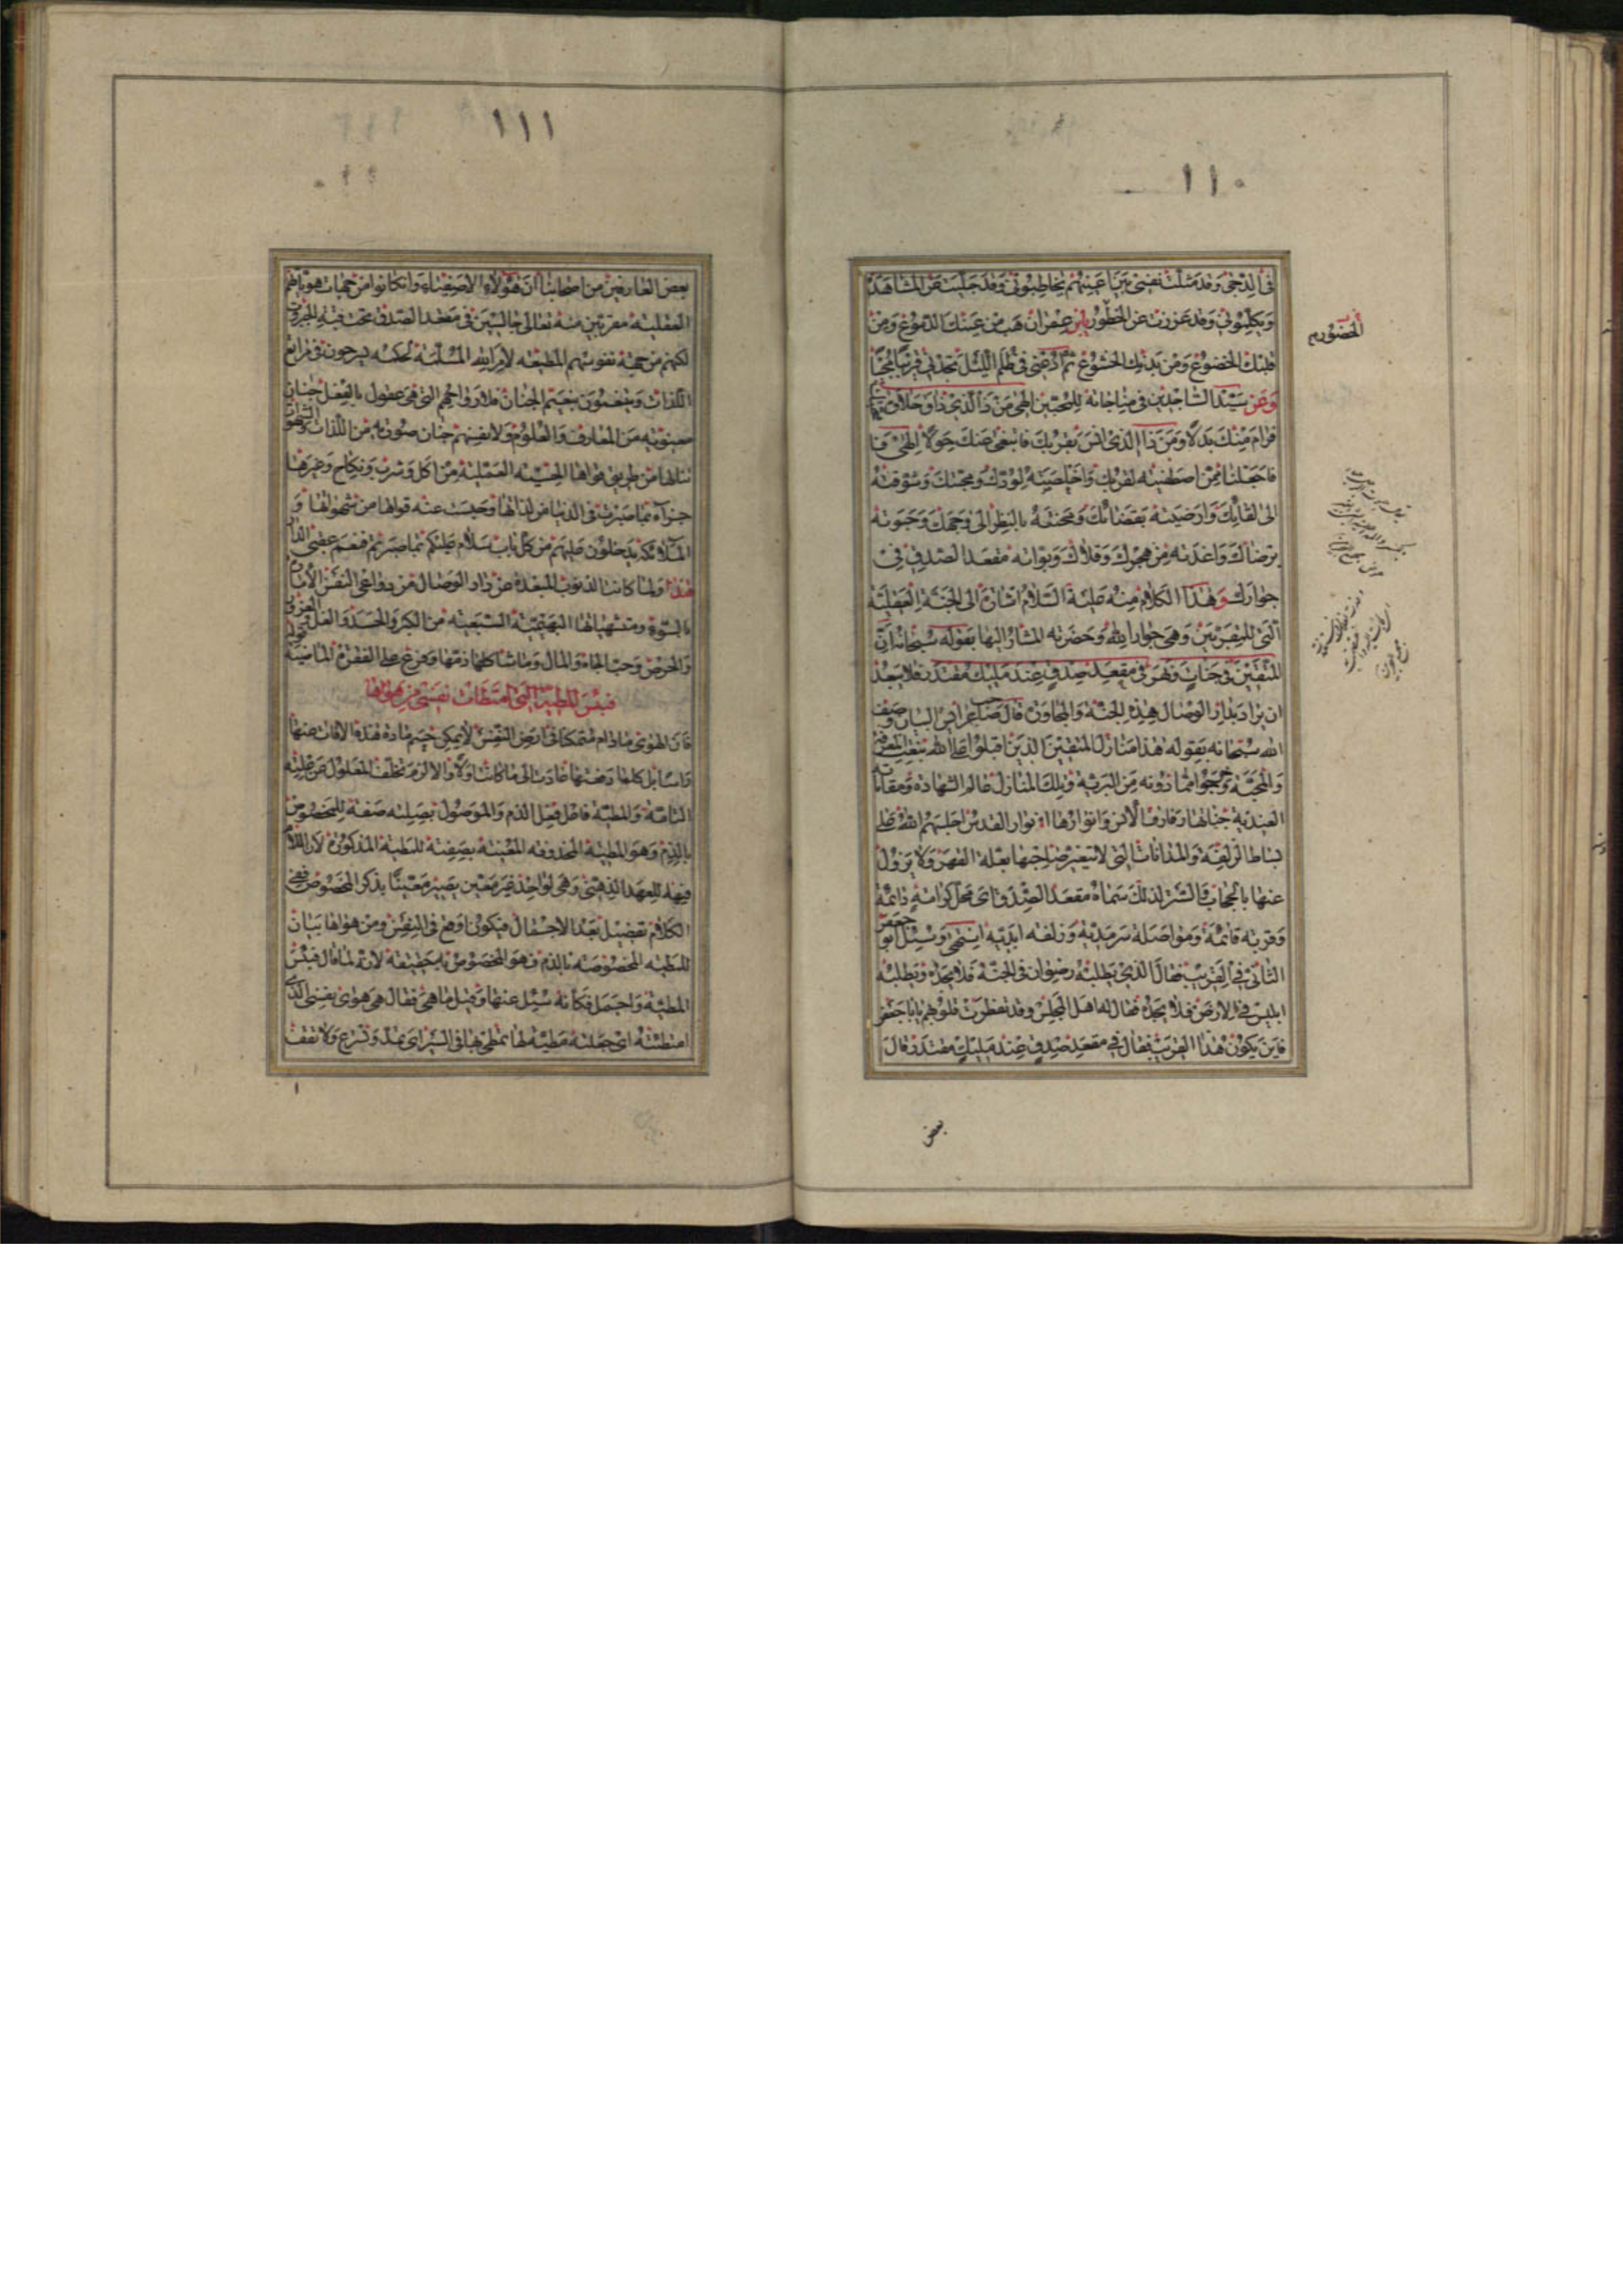 ١١٠
في الدجى وقد مثلت نفسي بين اعينهم يخاطبوني وقد جليت عن المشاهدة
ويكلموني وقد عززت عن الحضور يابن عمران هب من عينك الدموع ومن
قلبك الخضوع ومن بدنك الخشوع ثم ادعني في ظلم الليل تجدني قريبا مجيبا
وعن سيد الساجدين في مناجاته للمحبين الهي من ذا الذي ذاق حلاوة محبتك
فرام منك بدلا ومن ذا الذي انس بقربك فابتغى عنك حولا الهي
فاجعلنا ممن اصطفيته لقربك واخلصته لودك ومحبتك وشوقته
الى لقائك وارضيته بقضائك ومنحته بالنظر الى وجهك وحبوته
برضاك واعذته من هجرك وقلاك وبواته مقعد الصدق في
جوارك وهذا الكلام منه عليه السلام اشارة الى الجنة العقلية
التي للمقربين وهي جوار الله وحضرته المشار اليها بقوله سبحانه ان
المتقين في جنات ونهر في مقعد صدق عند مليك مقتدر فلا يبعد
ان يراد بدار الوصال هذه الجنة والمجاورة قال صاحب عرايس البيان وصف
الله سبحانه بقوله هذا منازل المتقين الذين اقبلوا على الله بنعت المعرفة
والمحبة وخرجوا مما دونه من البرية وتلك المنازل عالم الشهادة ومقامات
العندية جنانها رفارف الانس وانهارها انوار القدس اجلسهم الله على
بساط الزلفة والمداناة التي لا يتغير صاحبها بعلة القهر ولا يزول
عنها بالحجاب والستر لذلك سماه مقعد الصدق اي محل كرامة دائمة
وقربة قائمة ومواصلة سرمدية وزلفة ابدية انتهى وسئل ابو جعفر
الثاني في القريب فقال الذي يطلبه رضوان في الجنة فلا يجده ويطلبه
ابليس في الارض فلا يجده فقال له اهل المجلس وقد تفطرت قلوبهم يا ابا جعفر
فاين يكون هذا القريب فقال في مقعد صدق عند مليك مقتدر قال
بعض
١١١
بعض العارفين من اصحابنا ان هؤلاء الاصفياء وان كانوا من جهات هوياتهم
العقلية مقربين منه تعالى جالسين في مقعد الصدق تحت قبة الجبروت
لكنهم من جهة نفوسهم المطيعة لامر الله المسلمة لحكمه يسرحون في مراتع
اللذات وينعمون بنعيم الجنان فلارواحهم التي هي عقول بالفعل جنان
معنوية من المعارف والعلوم ولانفسهم جنان صورية من اللذات والشهوات
تنالها من طريق قواها الحسية العملية من اكل وشرب ونكاح وغيرها
جزاء بما صبرت في الدنيا عن لذاتها وحبست عنه قواها من شهواتها و
الملائكة يدخلون عليهم من كل باب سلام عليكم بما صبرتم فنعم عقبى الدار
هذا ولما كانت الذنوب المبعدة عن دار الوصال من دواعي النفس الامارة
بالسوء ومشتهياتها البهيمية السبعية من الكبر والحسد والغل
والحرص وحب الجاه والمال وما شاكلها ذمها وفرع على الفقرة الماضية
فبئس المطية التي امتطات نفسي من هواها
فان الهوى مادام متمكنا في ارض النفس لا يمكن حسم مادة هذه الافات عنها
راسا بل كلما دفعتها عادت الى ما كانت اولا والا لزم تخلف المعلول عن علته
التامة والمطية فاعل فعل الذم والموصول بصلته صفة للمخصوص
بالذم وهو المطية المحذوفة المغنية بصفته للمطية المذكورة لان اللام
فيها للعهد الذهني وهي لواحد غير معين يصير معينا بذكر المخصوص ففي
الكلام تفصيل بعد الاجمال فيكون اوقع في النفس ومن هواها بيان
للمطية المخصوصة بالذم فهو المخصوص بالحقيقة لانه لما قال فبئس
المطية واجمل فكانه سئل عنها وقيل ما هي فقال هي هوى نفسي الذي
امتطته اي جعلته مطية لها تمطي بها في السير اي تمد وتسرع ولا تقف